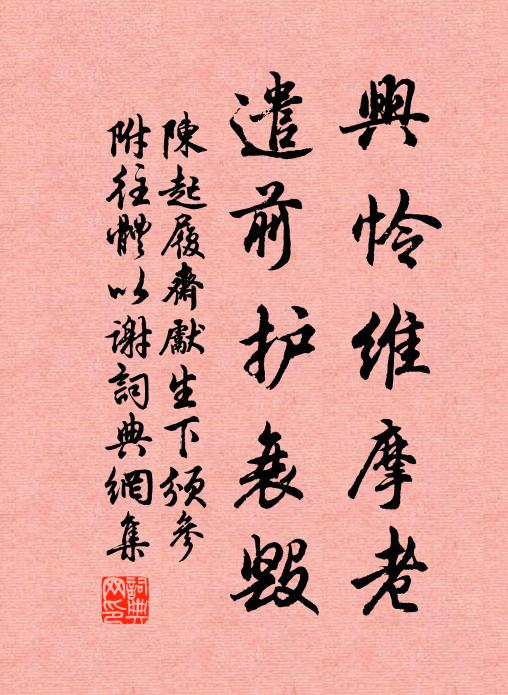 興怜維摩老
遣前护衰毀
陳起履齋獻生下頒參
附往體以谢詞典網集
詞典网印